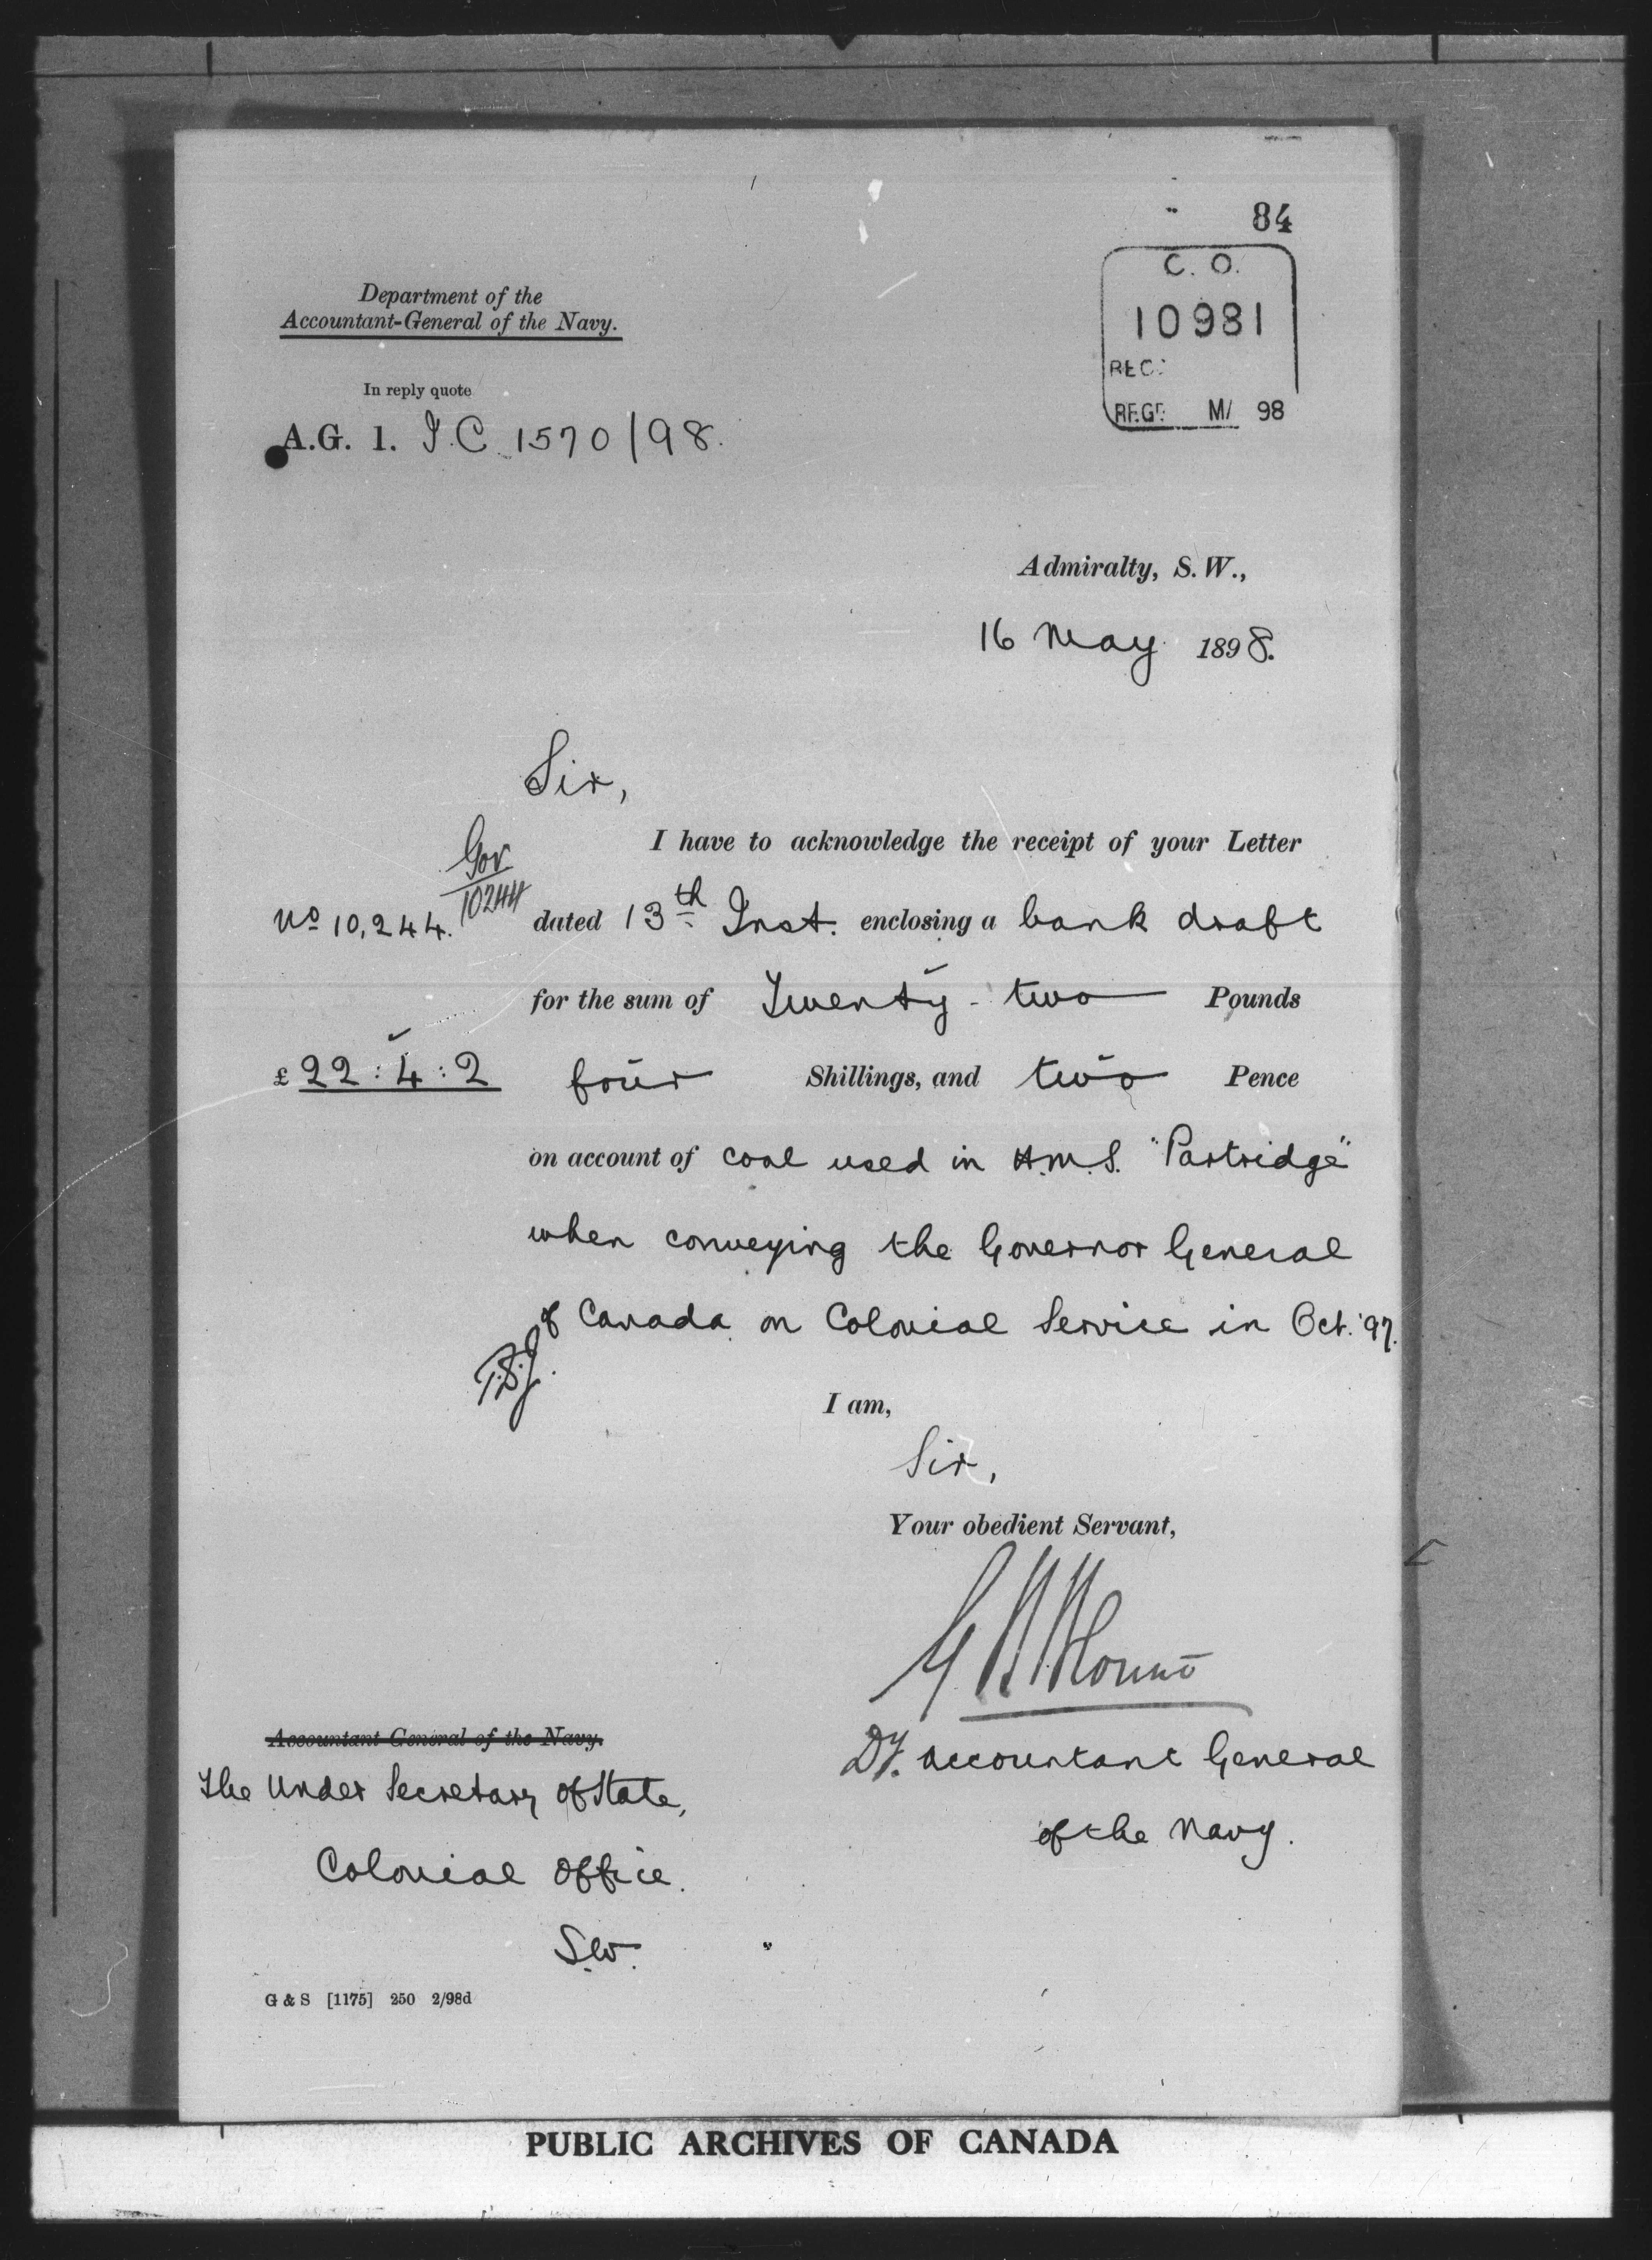 84
C. O.
10981
REC:
REGD MY 98
Department of the
Accountant-General of the Navy.
In reply quote
A.G. 1. I.C. 1570/98.
Admiralty, S.W.,
16 May 1898.
Sir,
I have to acknowledge the receipt of your Letter
Gov
10244
No 10,244. dated 13th Inst. enclosing a bank draft
for the sum of Twenty-two Pounds
£22:4:2 four Shillings, and two Pence
on account of coal used in H.M.S. "Partridge"
when conveying the Governor General
of Canada on Colonial Service in Oct. '97.
I am,
Sir,
Your obedient Servant,
Dy. Accountant General
of the Navy.
Accountant General of the Navy.
The Under Secretary of State,
Colonial Office.
S.W.
G & S [1175] 250 2/98d
PUBLIC ARCHIVES OF CANADA